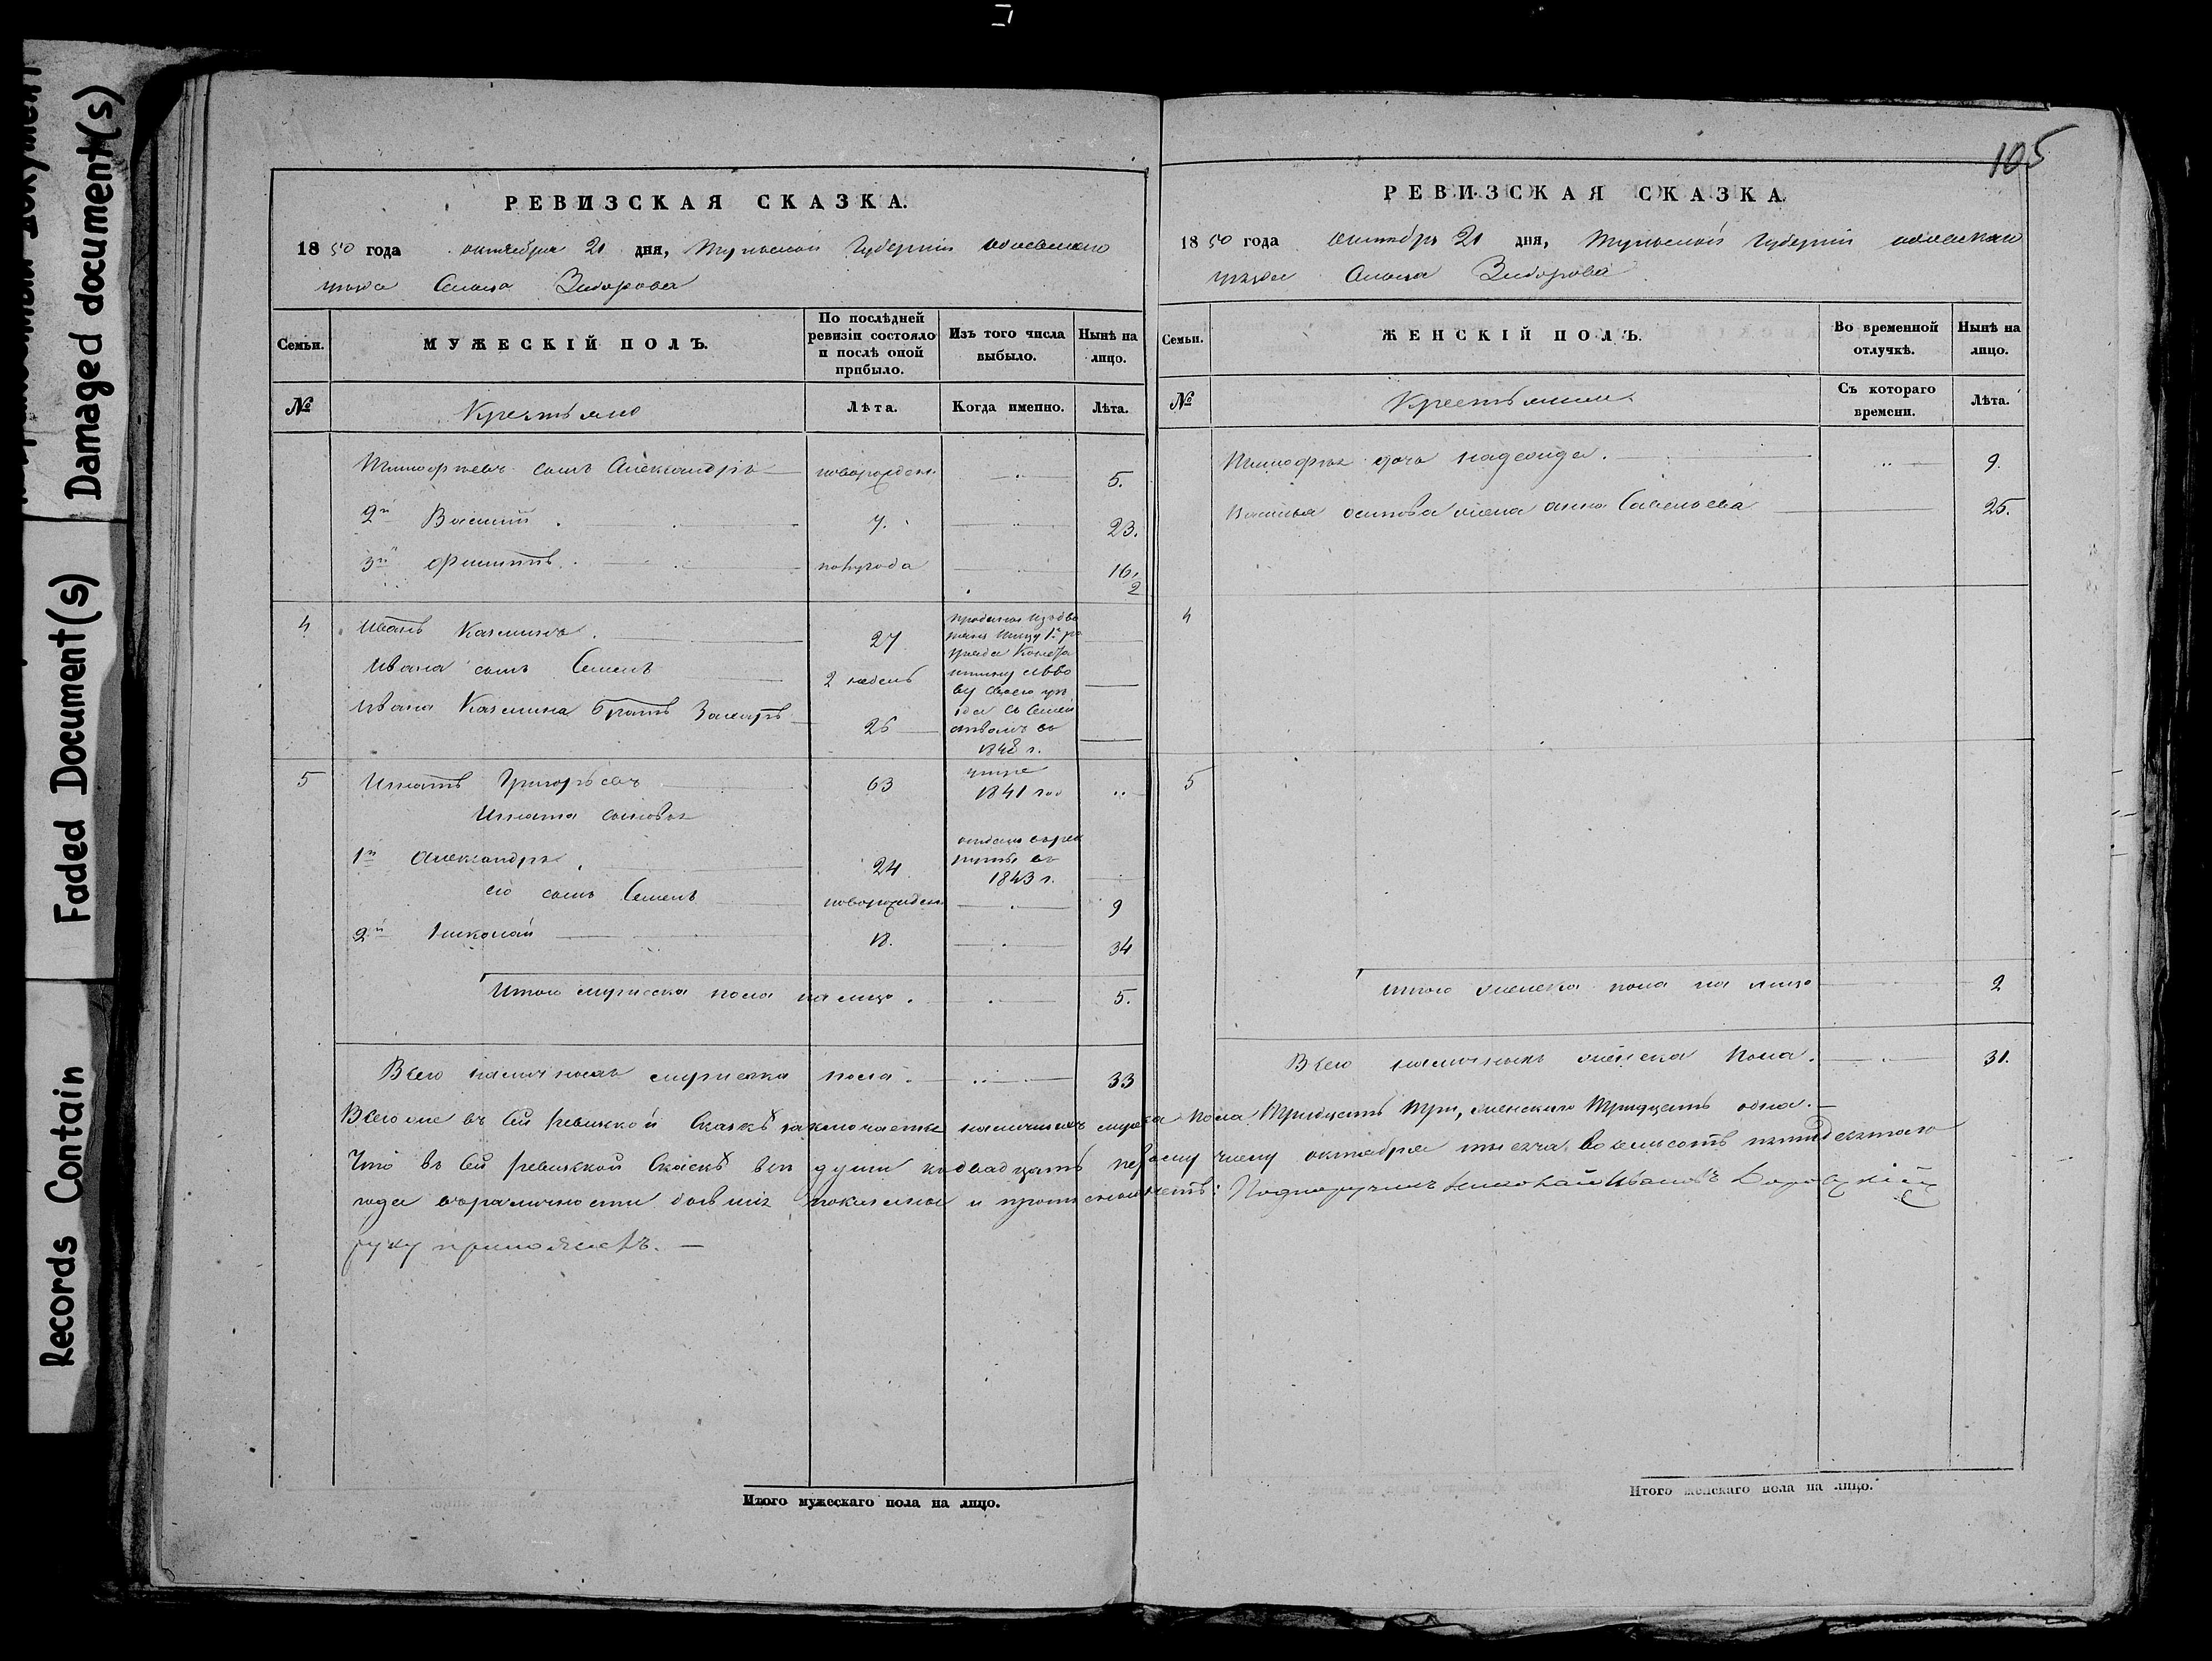 Records Contain Faded Document(s) Damaged document(s)
105
РЕВИЗСКАЯ СКАЗКА.
1850 года октября 21 дня, Тульской Губернии
уезда Сельца Зиборова
Семьи. МУЖЕСКІЙ ПОЛЪ. По послѣдней ревизіи состояло и послѣ оной прибыло. Изъ того числа выбыло. Нынѣ на лицо.
№ Крестьяне Лѣта. Когда именно. Лѣта.
сынъ Александръ новорожден. 5.
2й Василій 7. 23.
3й Филиппъ полгода 16 1/2
4 Иванъ Казминъ 27
Ивана сынъ Семенъ 2 недель
Ивана Казмина братъ Захаръ 26
1848 г.
5 Игнатъ Григорьевъ 63 умре 1841 год
Игната сыновья
1й Александръ 24 отданъ въ рекруты въ 1843 г.
его сынъ Семенъ новорожден 9
2й Николай 18. 34
Итого мужеска пола на лицо. 5.
Всего наличныхъ мужеска пола. 33
Итого мужескаго пола на лицо.
РЕВИЗСКАЯ СКАЗКА.
1850 года Октября 21 дня, Тульской Губерніи
уезда Сельца Зиборова
Семьи. ЖЕНСКІЙ ПОЛЪ. Во временной отлучкѣ. Нынѣ на лицо.
№ Съ котораго времени. Лѣта.
дочь Надежда. 9.
Василья Осипова жена Анна Савельева 25.
4
5
Итого женска пола на лицо 2
Всего наличныхъ женска пола. 31.
Всего же въ сей ревизской сказкѣ заключается наличныхъ мужеска пола тридцать три, женскаго тридцать одна.
Что въ сей ревизской сказкѣ все души къ двадцать первому числу октября тысяча восемьсотъ пятидесятаго
года Подпоручикъ Николай Ивановъ
руку приложилъ.
Итого женскаго пола на лицо.